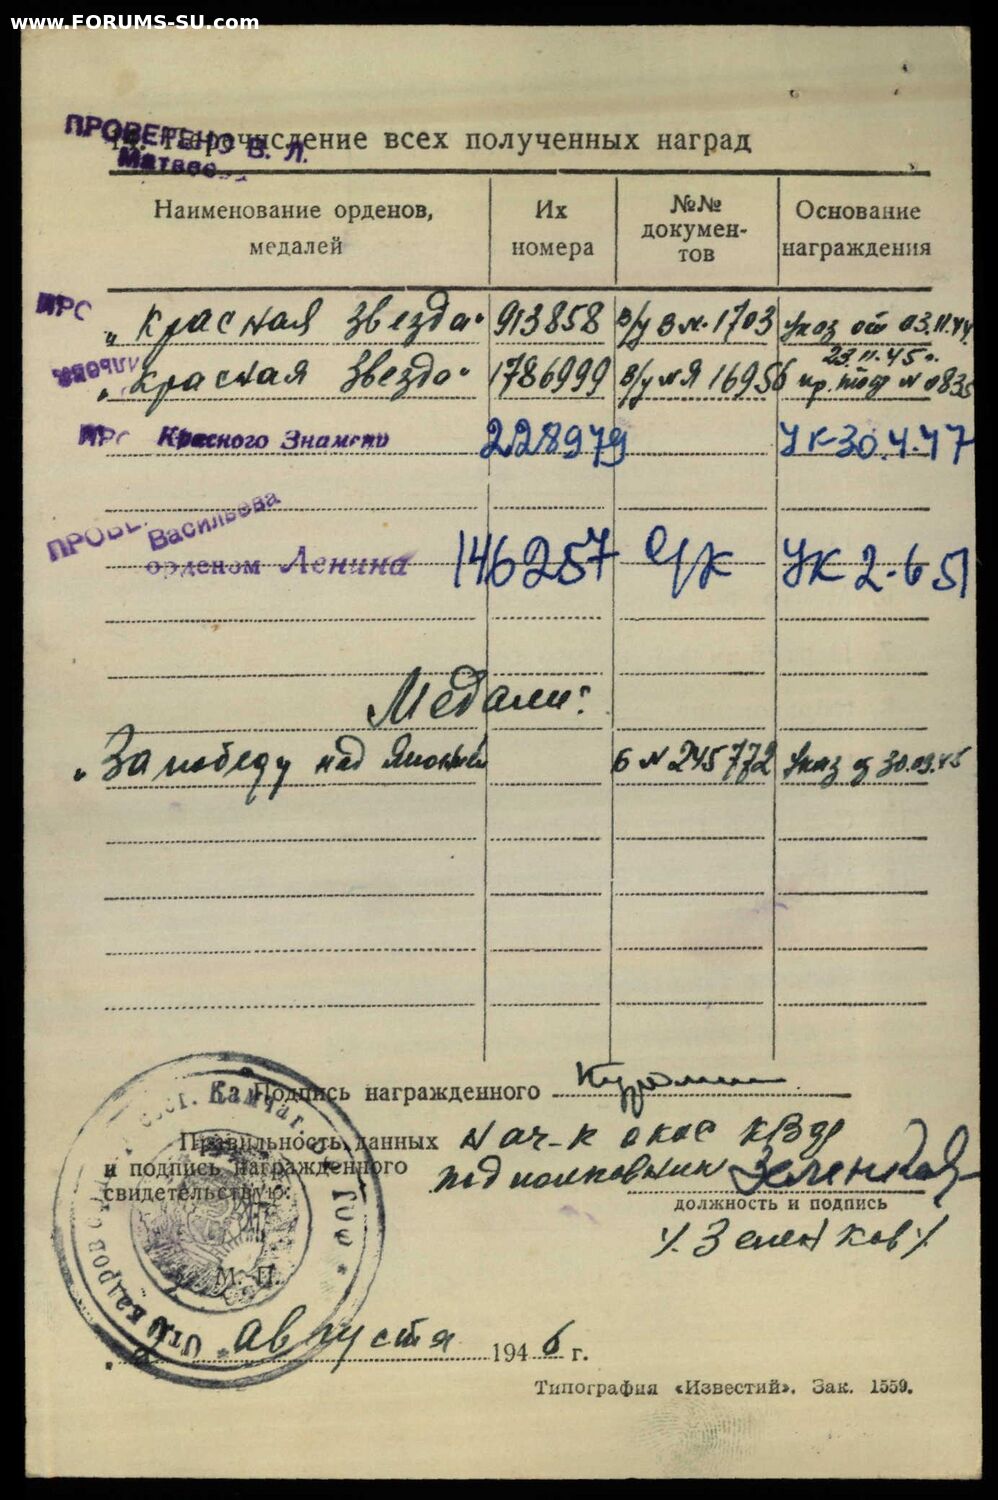 www.FORUMS-SU.com
ПРОВЕРЕНО В. Л.
Перечисление всех полученных наград
Наименование орденов, медалей
Их номера
№№ документов
Основание награждения
„Красная Звезда" 913858 в/у В №. 1703 Указ от 03.11.44
23.11.45 г.
„Красная Звезда" 1786999 в/у № Я 16956 пр. № 0835
ПРО Красного Знамени 228979 УК-30.4.47
ПРОВЕ Васильева
орденом Ленина 146257 о/к УК 2-6 51
Медали:
„За победу над Японией б № 245772 Указ 30.09.45
Подпись награжденного
Правильность данных Нач-к окос КВФ
и подпись награжденного подполковник Зеленков
свидетельствую:
должность и подпись
/. Зеленков /
М. П.
августа 1946 г.
Типография «Известий». Зак. 1559.